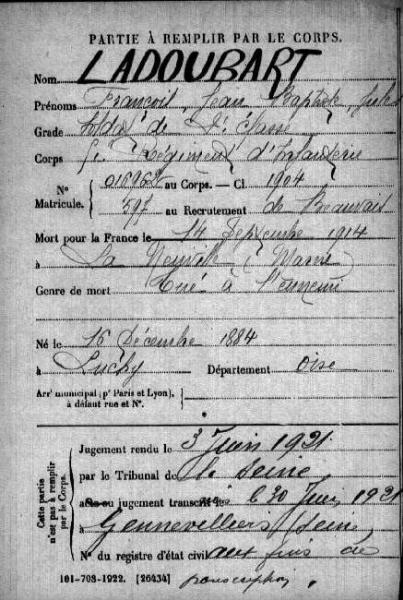 PARTIE À REMPLIR PAR LE CORPS.
Nom LADOUBART
Prénoms François, Jean Baptiste, Jules
Grade soldat de 2e classe
Corps Régiment d'Infanterie
No Matricule. { 01696 au Corps. — Cl. 1904
597 au Recrutement de Beauvais
Mort pour la France le 14 Septembre 1914
à La Neuville (Marne)
Genre de mort Tué à l'ennemi
Né le 16 Décembre 1884
à Luchy Département Oise
Arrt municipal (pr Paris et Lyon), à défaut rue et No.
Cette partie n'est pas à remplir par le Corps.
Jugement rendu le 3 Juin 1921
par le Tribunal de la Seine
acte ou jugement transcrit le 20 Juin 1921
à Gennevilliers (Seine)
No du registre d'état civil aux fins de
transcription.
101-708-1922. [26434]